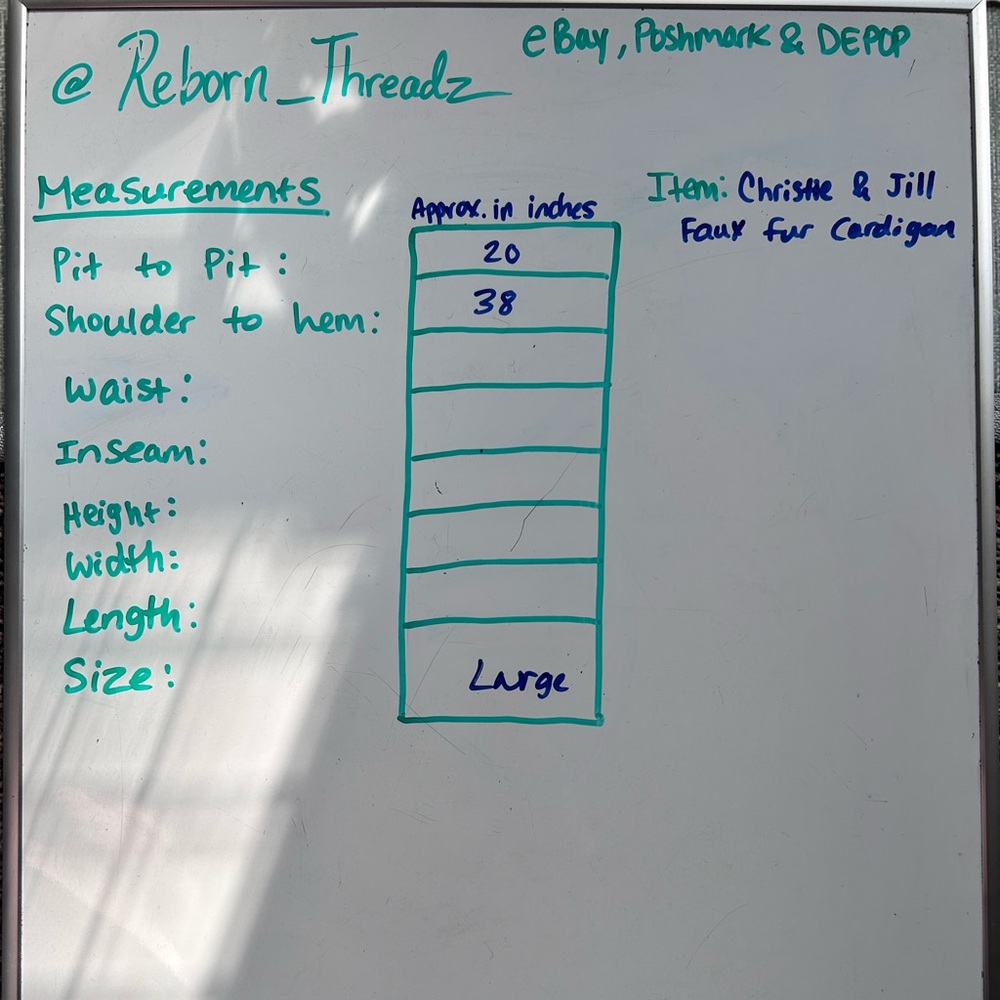 @ Reborn_Threadz
eBay, Poshmark & DEPOP
Measurements
Approx. in inches
Item: Christie & Jill
Faux fur Cardigan
Pit to Pit: 20
Shoulder to hem: 38
Waist:
Inseam:
Height:
Width:
Length:
Size: Large